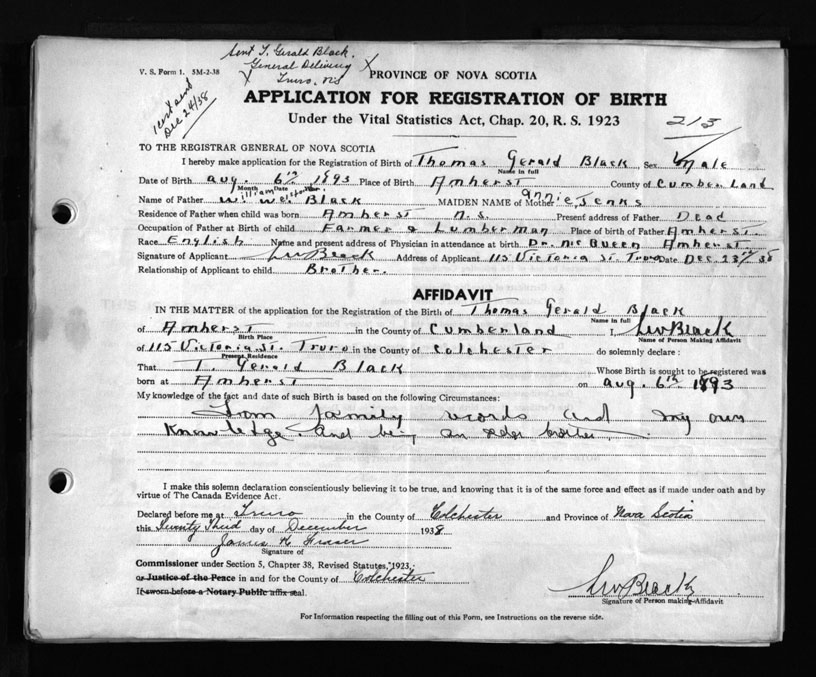 Sent T. Gerald Black.
General Delivery
Truro, N.S.
V. S. Form 1. 5M-2-38
PROVINCE OF NOVA SCOTIA
Dec 24/38
APPLICATION FOR REGISTRATION OF BIRTH
Under the Vital Statistics Act, Chap. 20, R. S. 1923
213
TO THE REGISTRAR GENERAL OF NOVA SCOTIA
I hereby make application for the Registration of Birth of Thomas Gerald Black Sex Male
Name in full
Date of Birth Aug. 6th 1893 Place of Birth Amherst County of Cumberland
Month Day Year
Name of Father William Black MAIDEN NAME of Mother Annie Jenks
Residence of Father when child was born Amherst N.S. Present address of Father Dead
Occupation of Father at Birth of child Farmer & Lumberman Place of birth of Father Amherst.
Race English Name and present address of Physician in attendance at birth Dr. McQueen Amherst
Signature of Applicant Black Address of Applicant 115 Victoria St. Truro Date Dec. 23rd 38
Relationship of Applicant to child Brother.
AFFIDAVIT
IN THE MATTER of the application for the Registration of the Birth of Thomas Gerald Black
Name in full
of Amherst in the County of Cumberland I, Black
Birth Place
Name of Person Making Affidavit
of 115 Victoria St. Truro in the County of Colchester do solemnly declare :
Present Residence
That T. Gerald Black Whose Birth is sought to be registered was
born at Amherst on Aug. 6th 1893
My knowledge of the fact and date of such Birth is based on the following Circumstances:
From family records and my own
Knowledge. And being an older brother.
I make this solemn declaration conscientiously believing it to be true, and knowing that it is of the same force and effect as if made under oath and by
virtue of The Canada Evidence Act.
Declared before me at Truro in the County of Colchester and Province of Nova Scotia
this Twenty Third day of December 1938
James K Fraser
Signature of
Commissioner under Section 5, Chapter 38, Revised Statutes, 1923,
or Justice of the Peace in and for the County of Colchester
If sworn before a Notary Public affix seal.
Black
Signature of Person making Affidavit
For Information respecting the filling out of this Form, see Instructions on the reverse side.